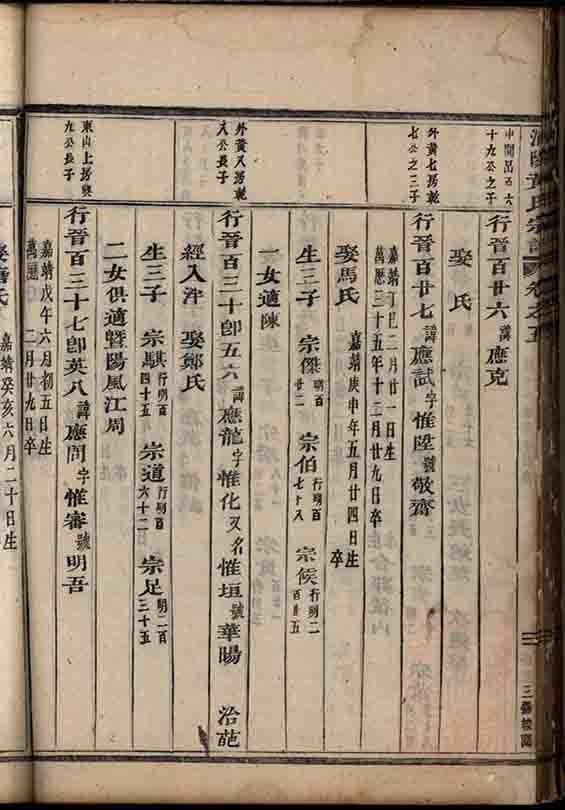 黃氏宗譜 卷之五
中開
十九公之子
行晉百廿六 諱應克
娶 氏
外黃七房乾
七公之三子
行晉百廿七 諱應試 字惟陞 號敬齋
嘉靖丁巳二月廿一日生
萬歷三十五年十二月廿九日卒
娶馬氏
嘉靖庚申年五月廿四日生
卒
生三子 宗傑 明百廿二 宗伯 行明百七十八 宗候 行明二百廿五
一女適陳
外黃八房乾
八公長子
行晉百三十卽五六 諱應龍 字惟化 又名惟垣 號華暘
經入泮 娶鄭氏
生三子 宗騏 行明百四十五 宗道 行明百六十二 宗足 明二百三十五
二女俱適暨陽風江周
東山上房
九公長子
行晉百三十七卽英八 諱應問 字惟審 號明吾
嘉靖戊午六月初五日生
萬歷 二月廿九日卒
娶 氏 嘉靖癸亥六月二十日生